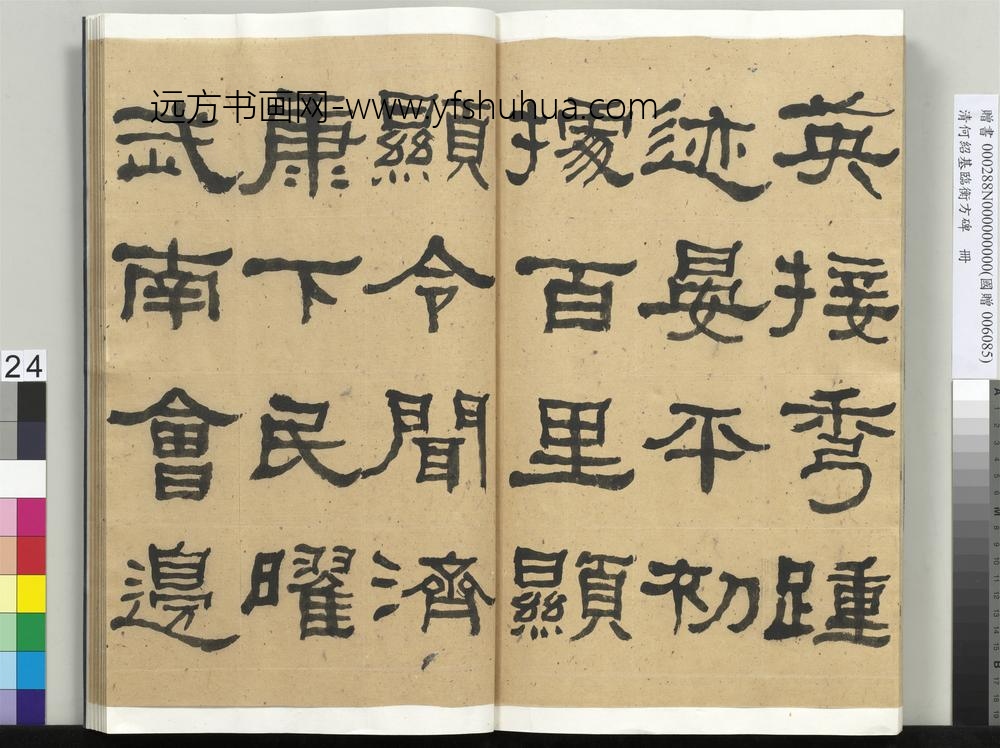 英接秀踵
迹晏平初
掾百里顯
顯令聞濟
康下民曜
武南會邊
远方书画网-www.yfshuhua.com
贈書 000288N000000000(國贈 006085)
清何紹基臨衡方碑 冊
24